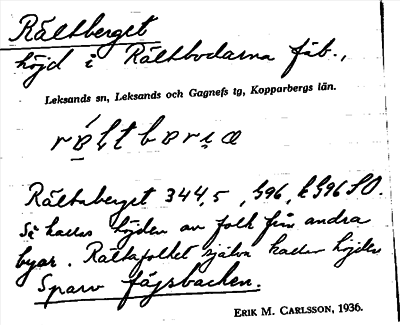 Rältberget
höjd i Rältbodarna fäb.,
Leksands sn, Leksands och Gagnefs tg, Kopparbergs län.
Rältaberget 344,5, G96, k G96 SO.
Så kallas höjden av folk från andra
byar. Rältafolket själva kallar höjden
Sparv fägsbacken.
ERIK M. CARLSSON, 1936.